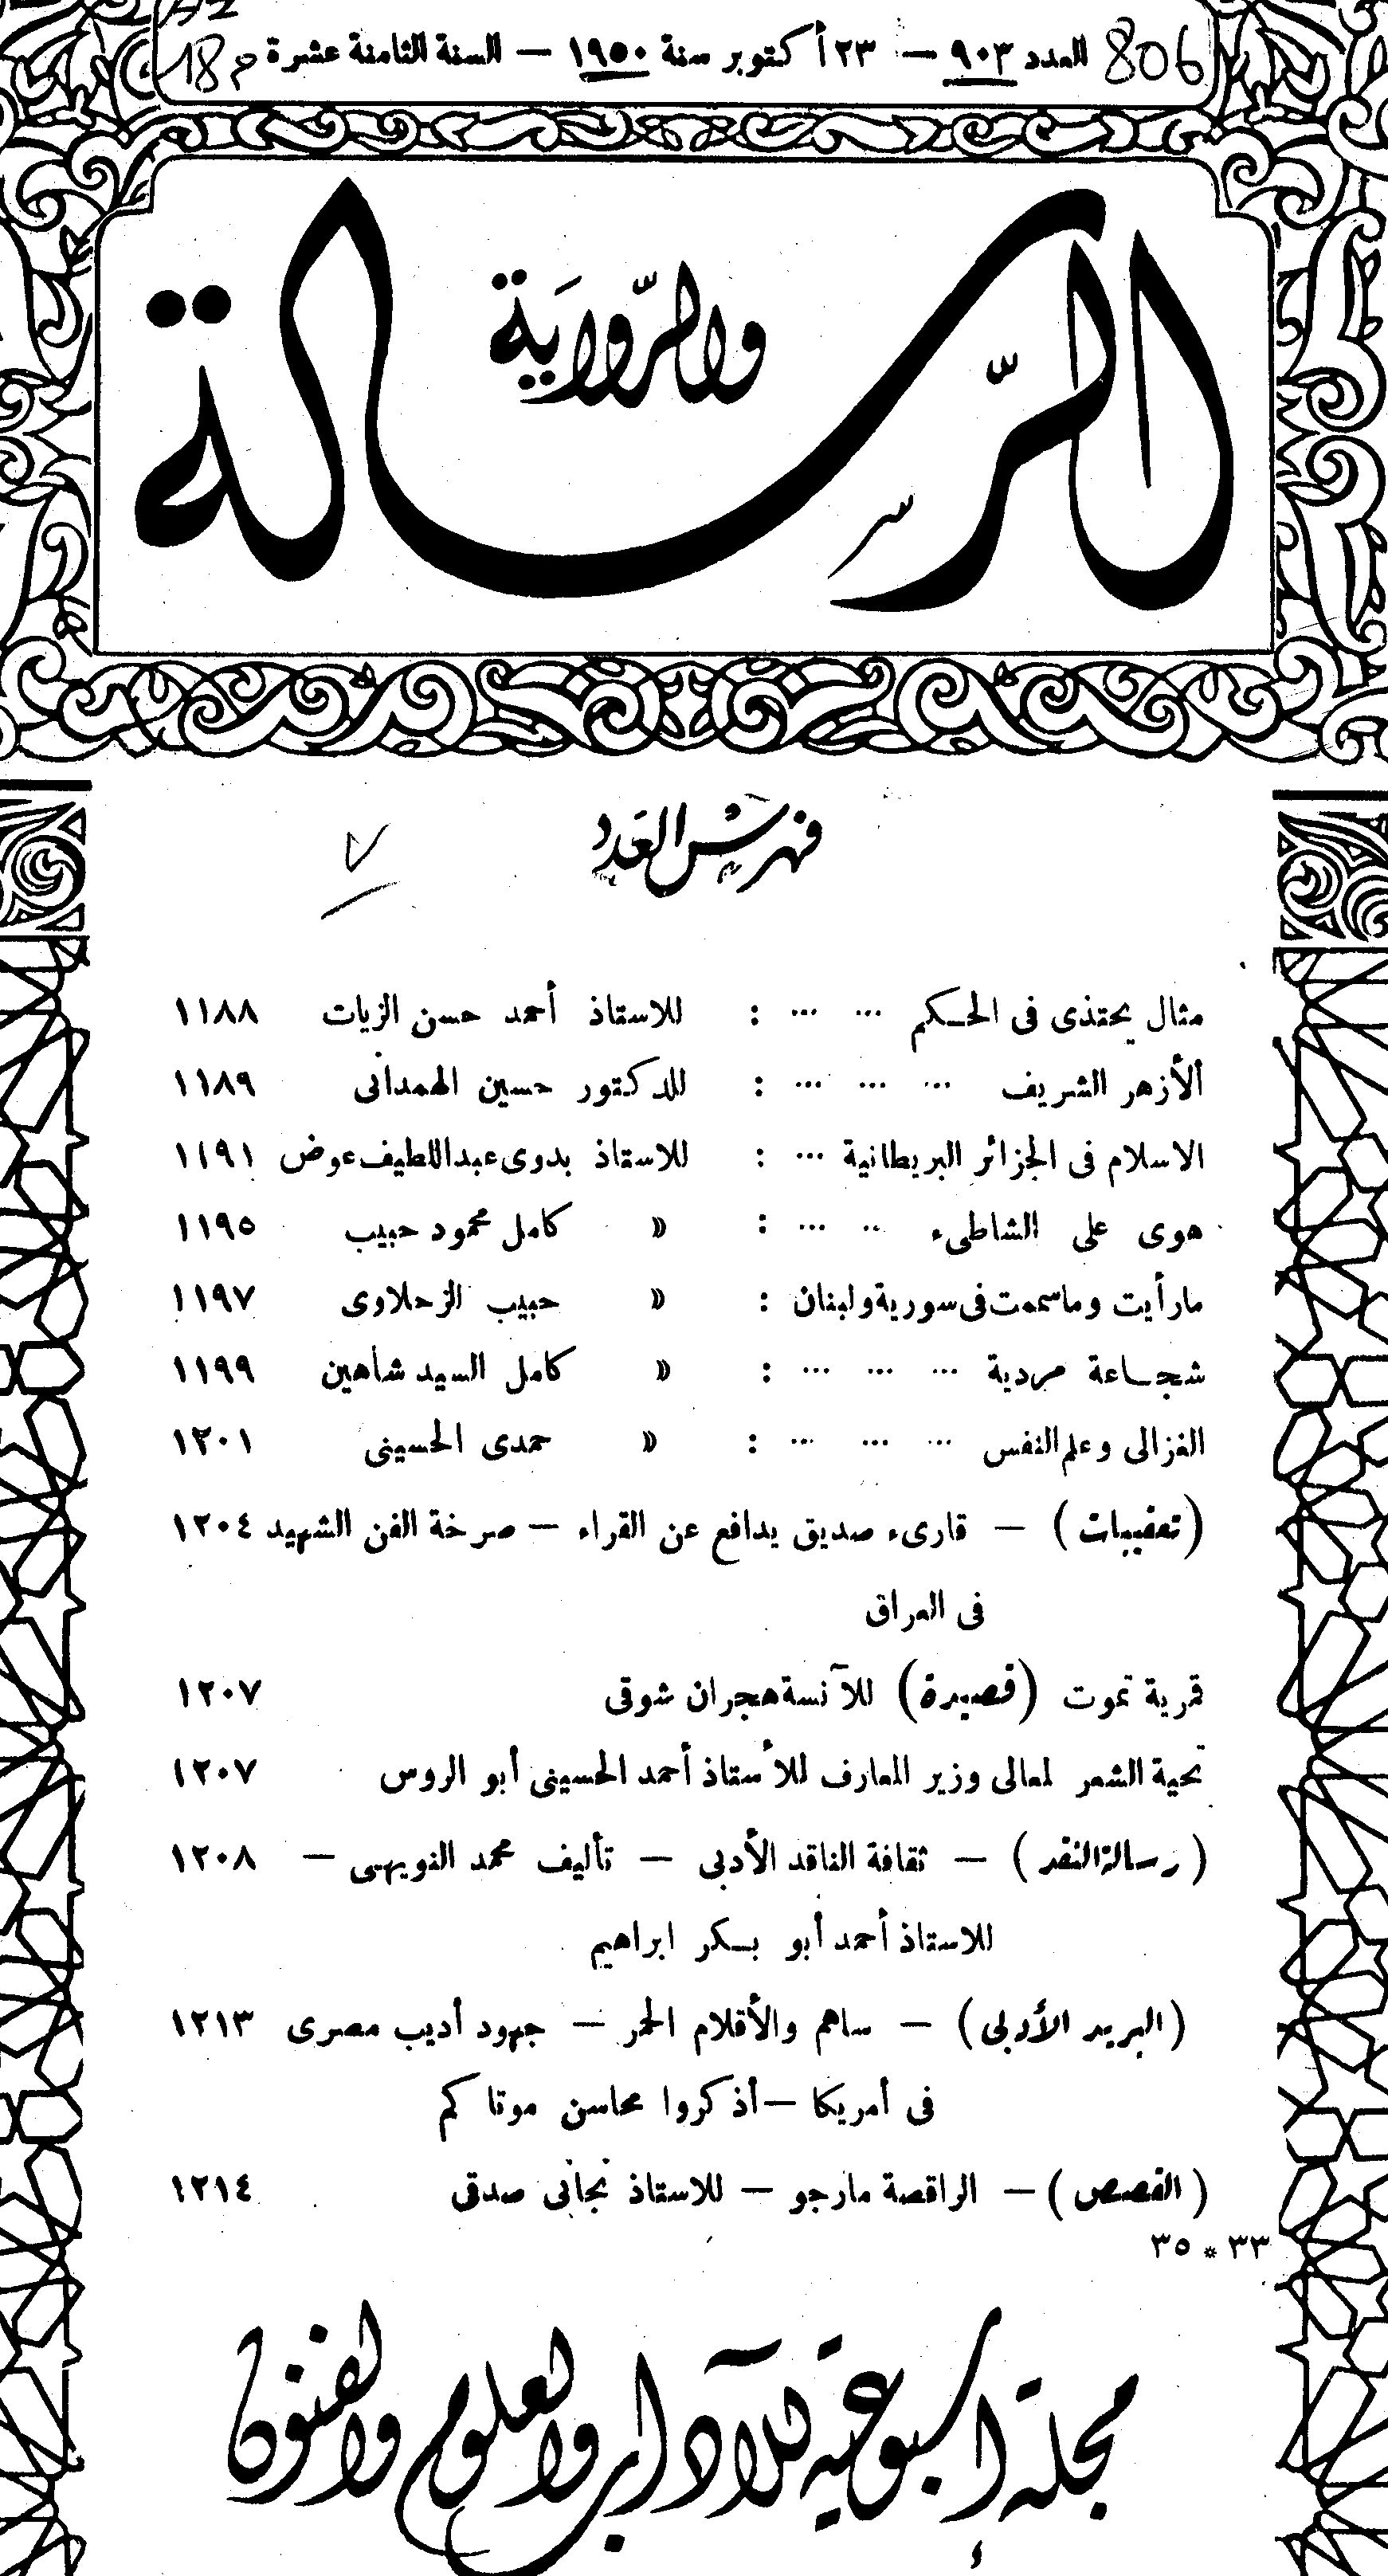 806 العدد ٩٠٣ — ٢٣ أكتوبر سنة ١٩٥٠ — السنة الثامنة عشرة م 18
الرسالة
والرواية
فهرس العدد
مثال يحتذى فى الحكم ... ... : للاستاذ أحمد حسن الزيات ١١٨٨
ألأزهر الشريف ... ... ... : للدكتور حسين الهمدانى ١١٨٩
الاسلام فى الجزائر البريطانية ... : للاستاذ بدوى عبد اللطيف عوض ١١٩١
هوى على الشاطىء .. ... : « كامل محمود حبيب ١١٩٥
مارأيت وماسمعت فى سورية ولبنان : « حبيب الزحلاوى ١١٩٧
شجاعة مردية ... ... ... : « كامل السيد شاهين ١١٩٩
الغزالى وعلم النفس ... ... ... : « حمدى الحسينى ١٢٠١
(تعقيبات) — قارىء صديق يدافع عن القراء — صرخة الفن الشهيد ١٢٠٤
فى العراق
قمرية تموت (قصيدة) للآنسة هجران شوقى ١٢٠٧
تحية الشعر لمعالى وزير المعارف للأستاذ أحمد الحسينى أبو الروس ١٢٠٧
(رسالة النقد) — ثقافة الناقد الأدبى — تأليف محمد النويهى — ١٢٠٨
للاستاذ أحمد أبو بكر ابراهيم
(البريد الأدبى) — ساهم والأقلام الحر — جهود أديب مصرى ١٢١٣
فى أمريكا — أذكروا محاسن موتاكم
(القصص) — الراقصة مارجو — للاستاذ نجاتى صدقى ١٢١٤
٣٣ * ٣٥
مجلة أسبوعية للآداب والعلوم والفنون